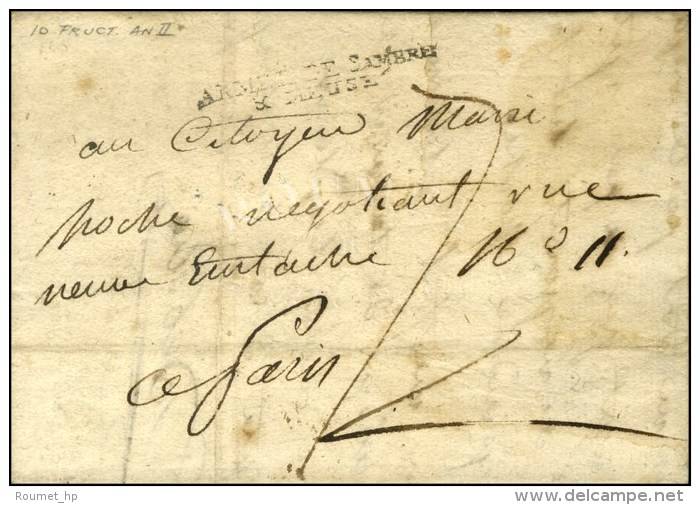 10 FRUCT. AN II
ARMÉE DE SAMBRE
& MEUSE
au Citoyen
negotiant rue
neuve Eustache N° 11.
a Paris
Roumet_hp
©delcampe.net